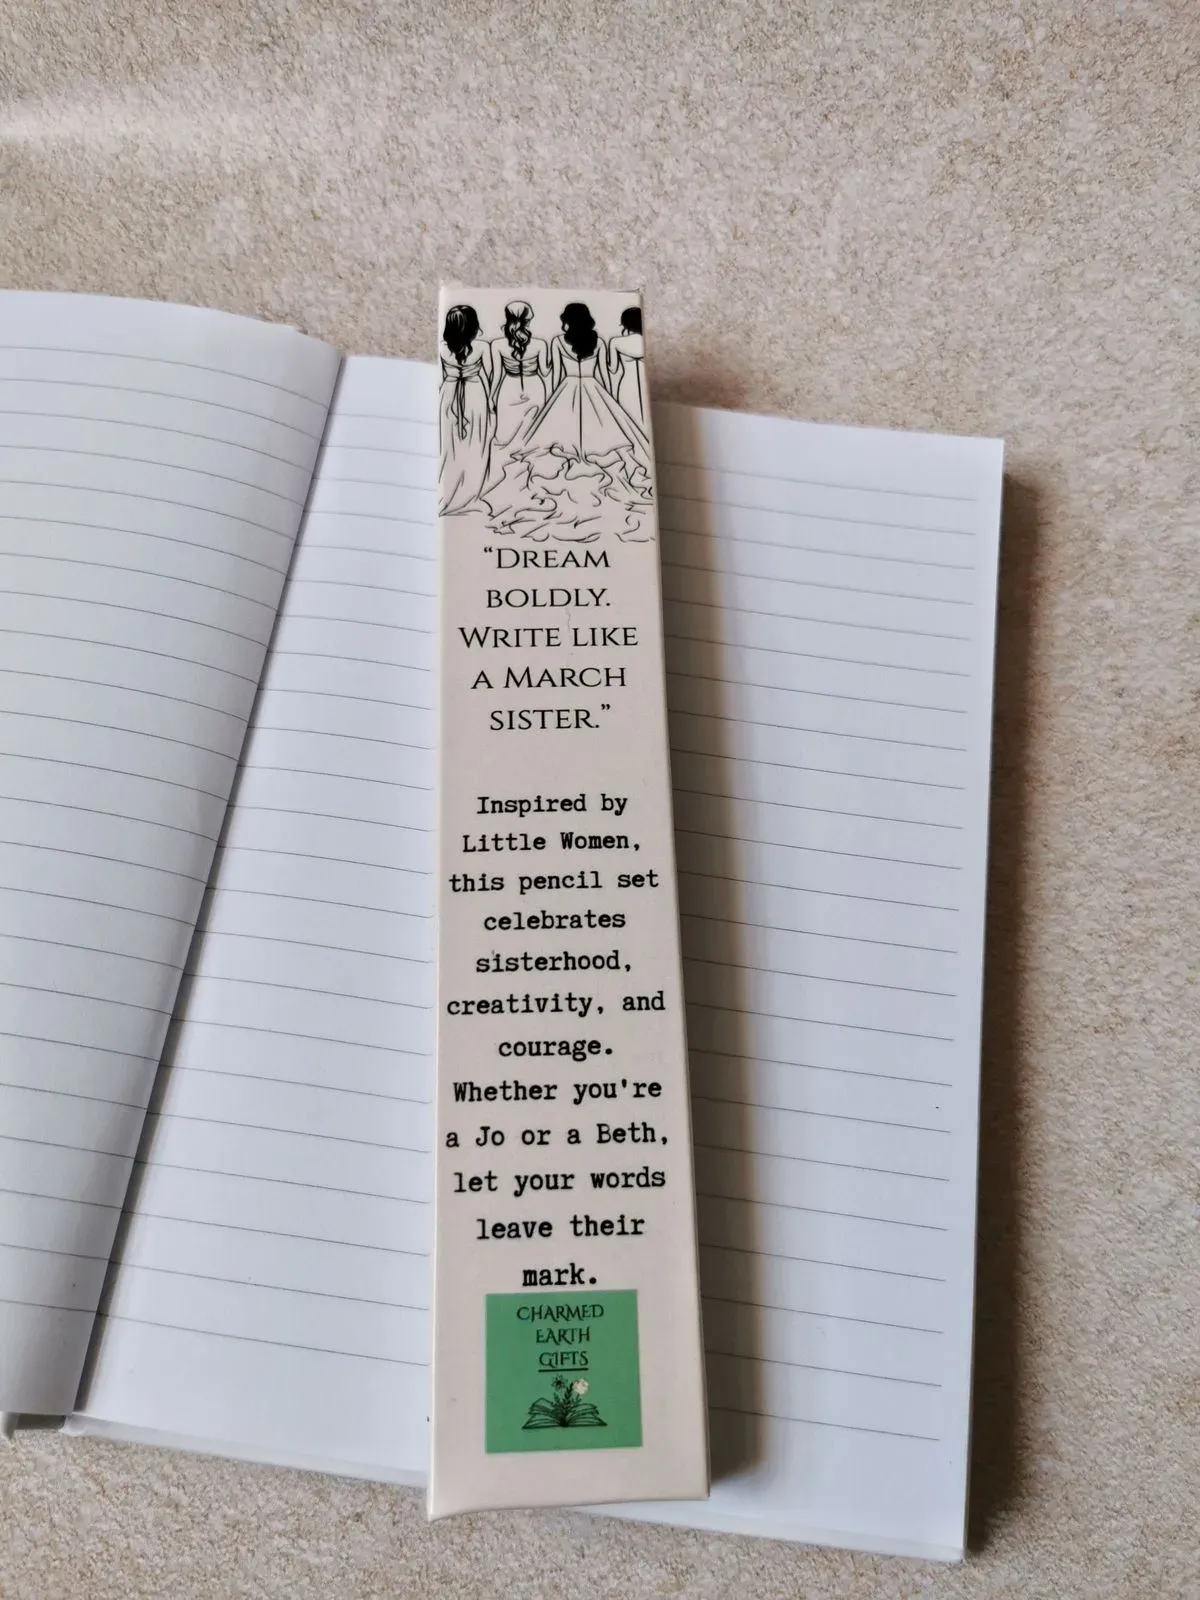 “DREAM
BOLDLY.
WRITE LIKE
A MARCH
SISTER.”
Inspired by
Little Women,
this pencil set
celebrates
sisterhood,
creativity, and
courage.
Whether you're
a Jo or a Beth,
let your words
leave their
mark.
CHARMED
EARTH
GIFTS